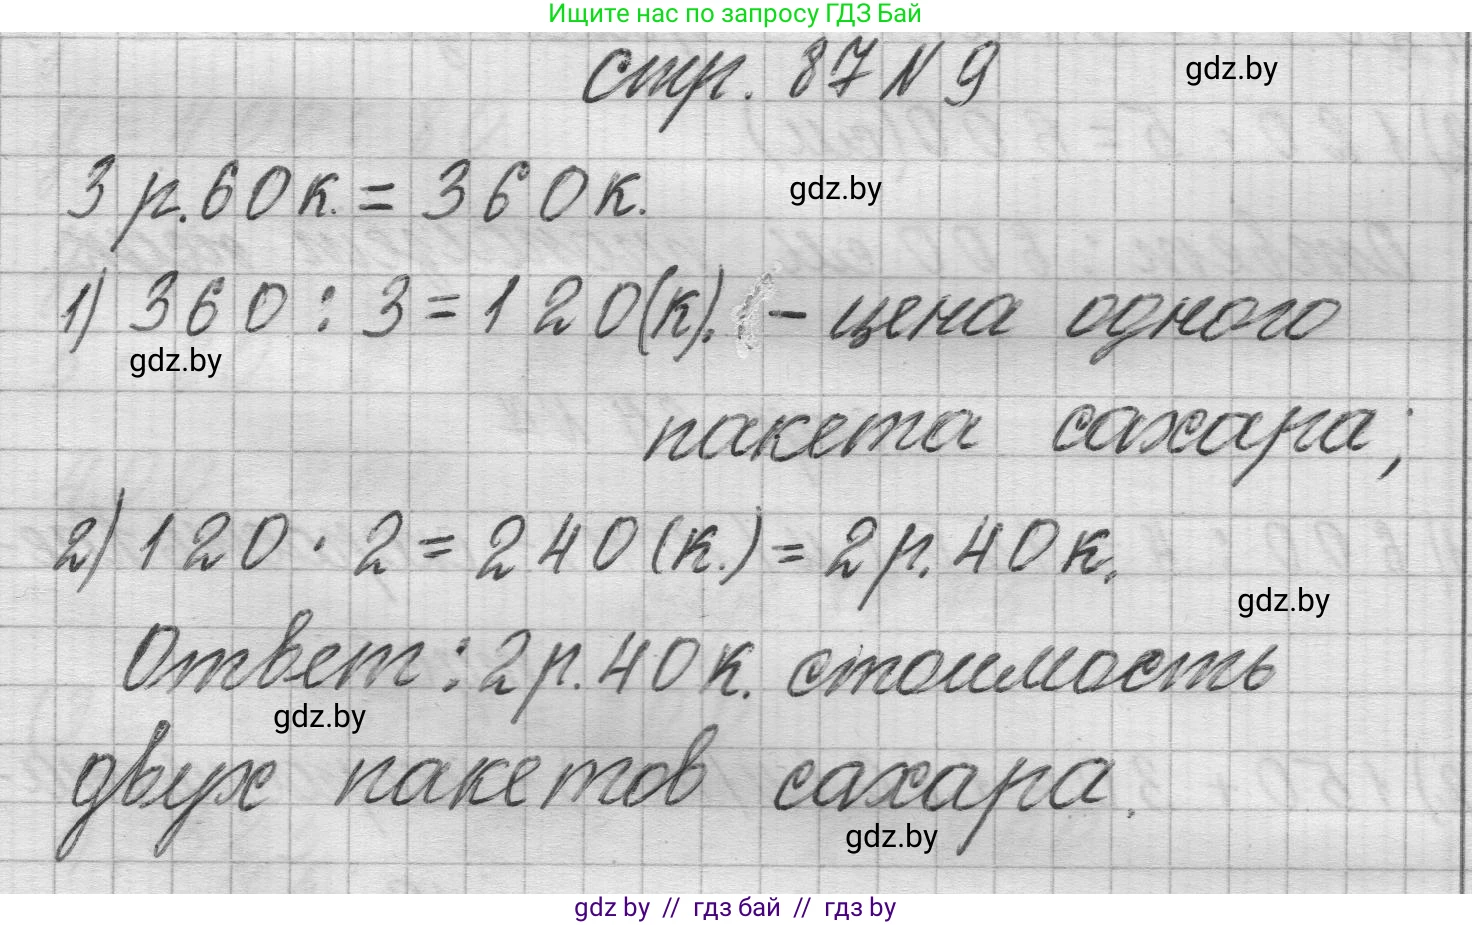 Ищите нас по запросу ГДЗ Бай
стр. 87 N 9
gdz.by
3 р. 60 к. = 360 к.
gdz.by
1) 360 : 3 = 120 (к). - цена одного
gdz.by
пакета сахара;
2) 120 · 2 = 240 (к.) = 2 р. 40 к.
gdz.by
Ответ : 2 р. 40 к. стоимость
gdz.by
двух пакетов сахара.
gdz.by
gdz by // гдз бай // гдз by